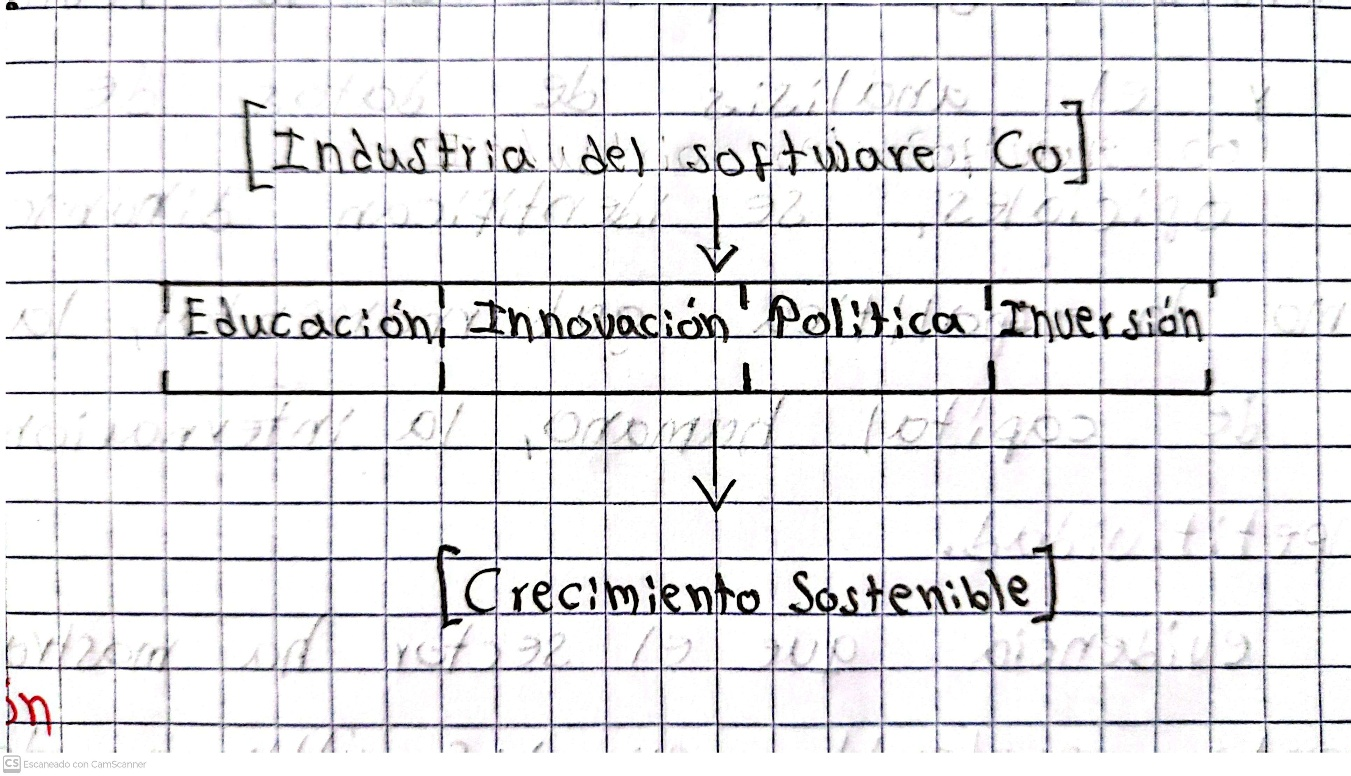 [Industria del software Co]
Educación Innovación Politica Inversión
[Crecimiento Sostenible]
ón
CS Escaneado con CamScanner